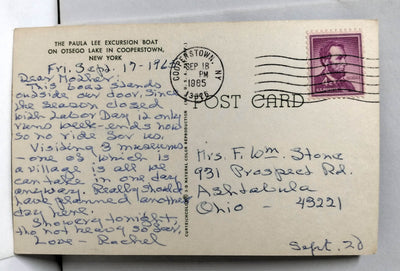 THE PAULA LEE EXCURSION BOAT
ON OTSEGO LAKE IN COOPERSTOWN,
NEW YORK
Fri. Sept. 17 - 196
Dear Mother:
This boat stands
outside our door. Since
the season closed
with Labor Day it only
runs week-ends now
so no ride for us.
Visiting 3 museums
- one of which is
a village is all we
can take in one day
anyway. Really should
have planned another
day here.
Showery tonight,
tho not heavy so far.
Love - Rachel
COOPERSTOWN, NY
SEP 18
PM
1965
POST CARD
Mrs. F. Wm. Stone
931 Prospect Rd.
Ashtabula
Ohio - 49221
Sept. 20